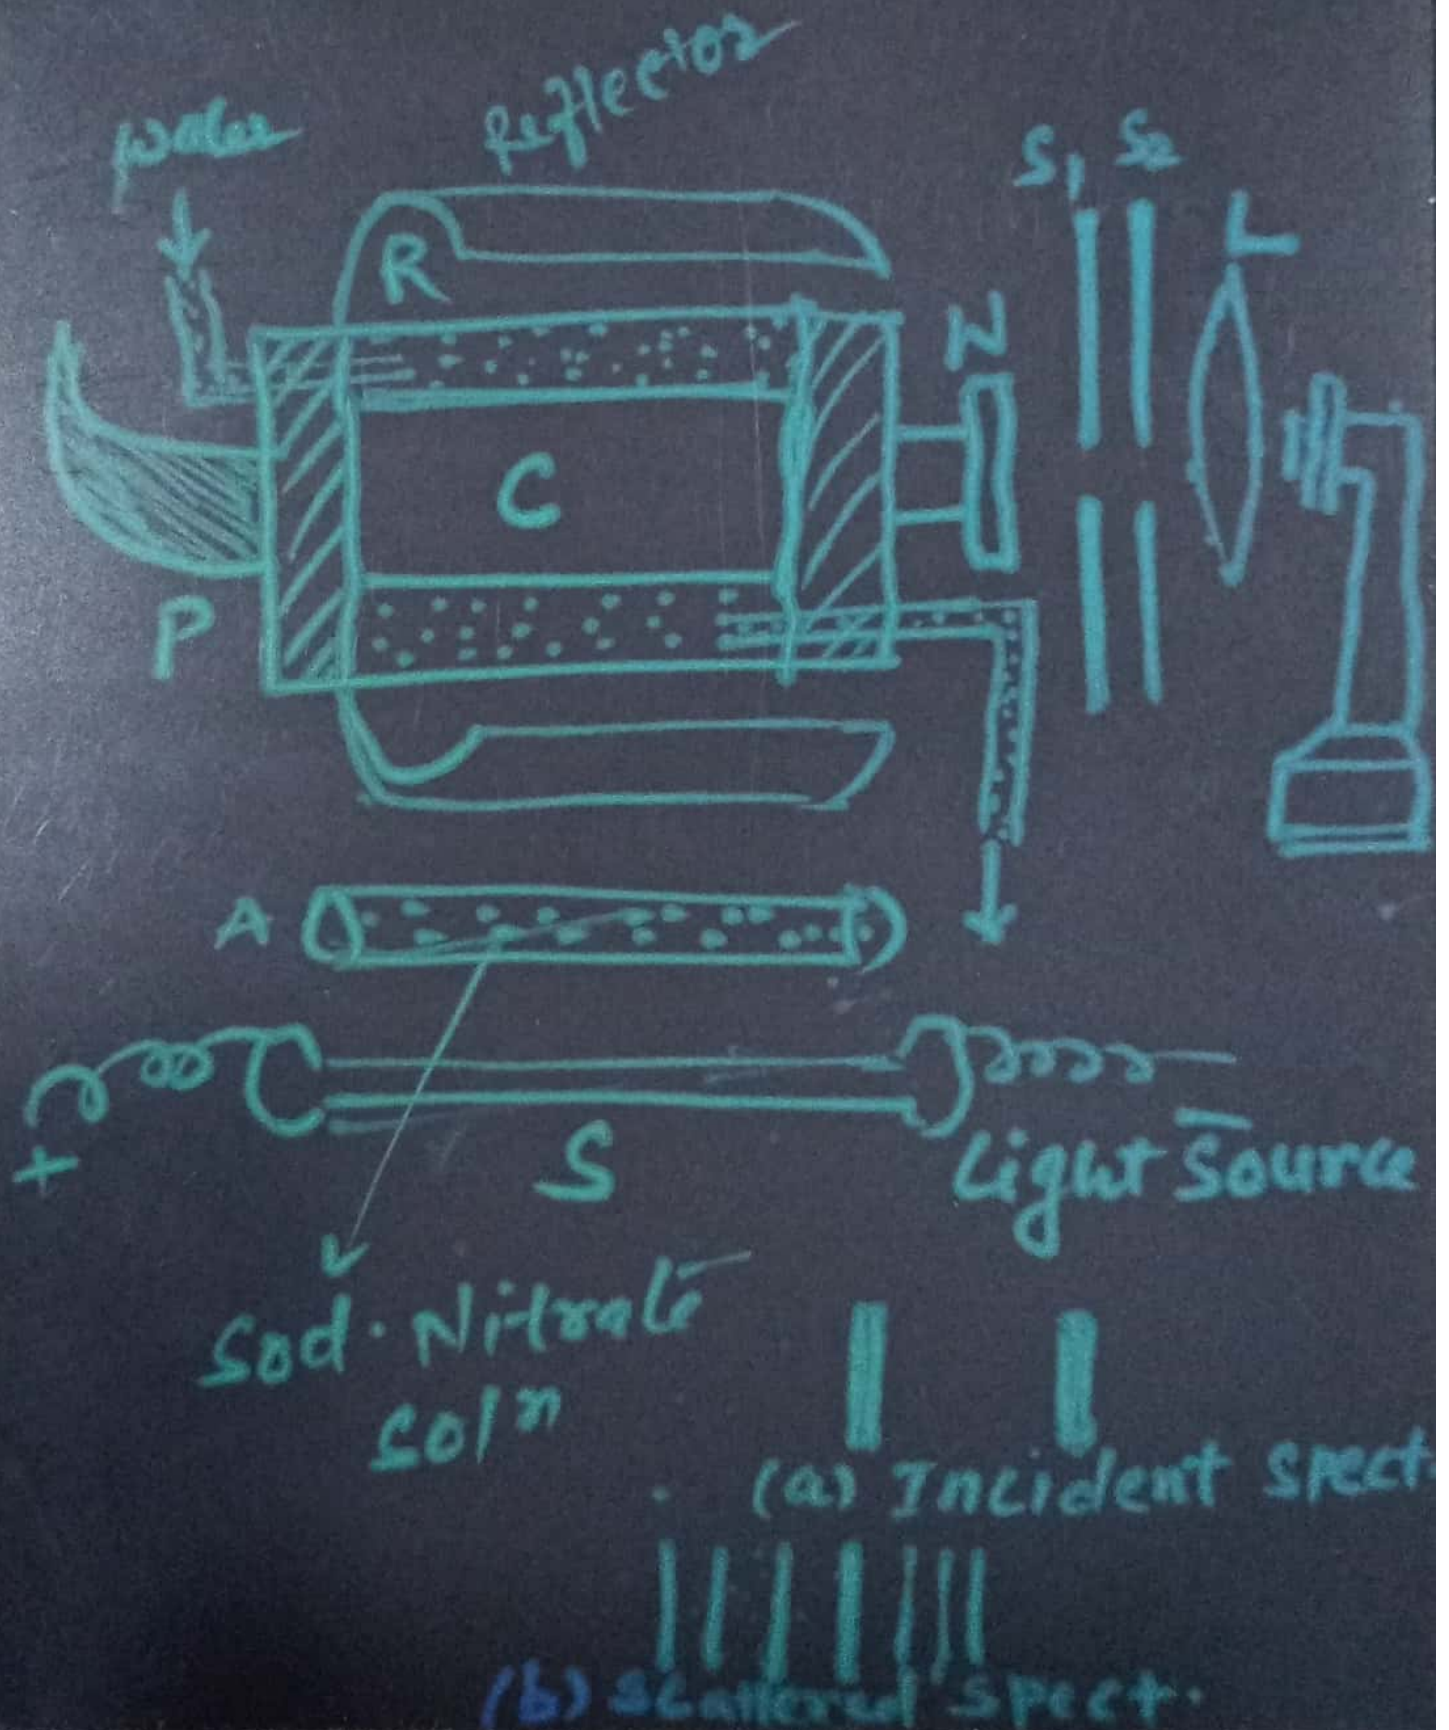 Reflector
water
S1 S2
L
R
W
C
P
A
+
-
S
Light Source
Sod. Nitrate
solⁿ
(a) Incident Spect.
(b) Scattered Spect.